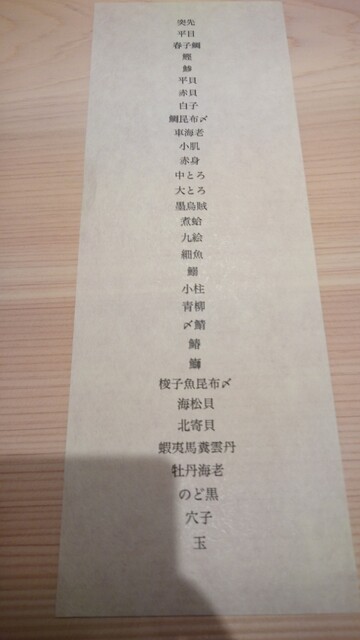 突先
平目
春子鯛
鰹
鯵
平貝
赤貝
白子
鯛昆布〆
車海老
小肌
赤身
中とろ
大とろ
墨烏賊
煮蛤
九絵
細魚
鰯
小柱
青柳
〆鯖
鰆
鰤
梭子魚昆布〆
海松貝
北寄貝
蝦夷馬糞雲丹
牡丹海老
のど黒
穴子
玉